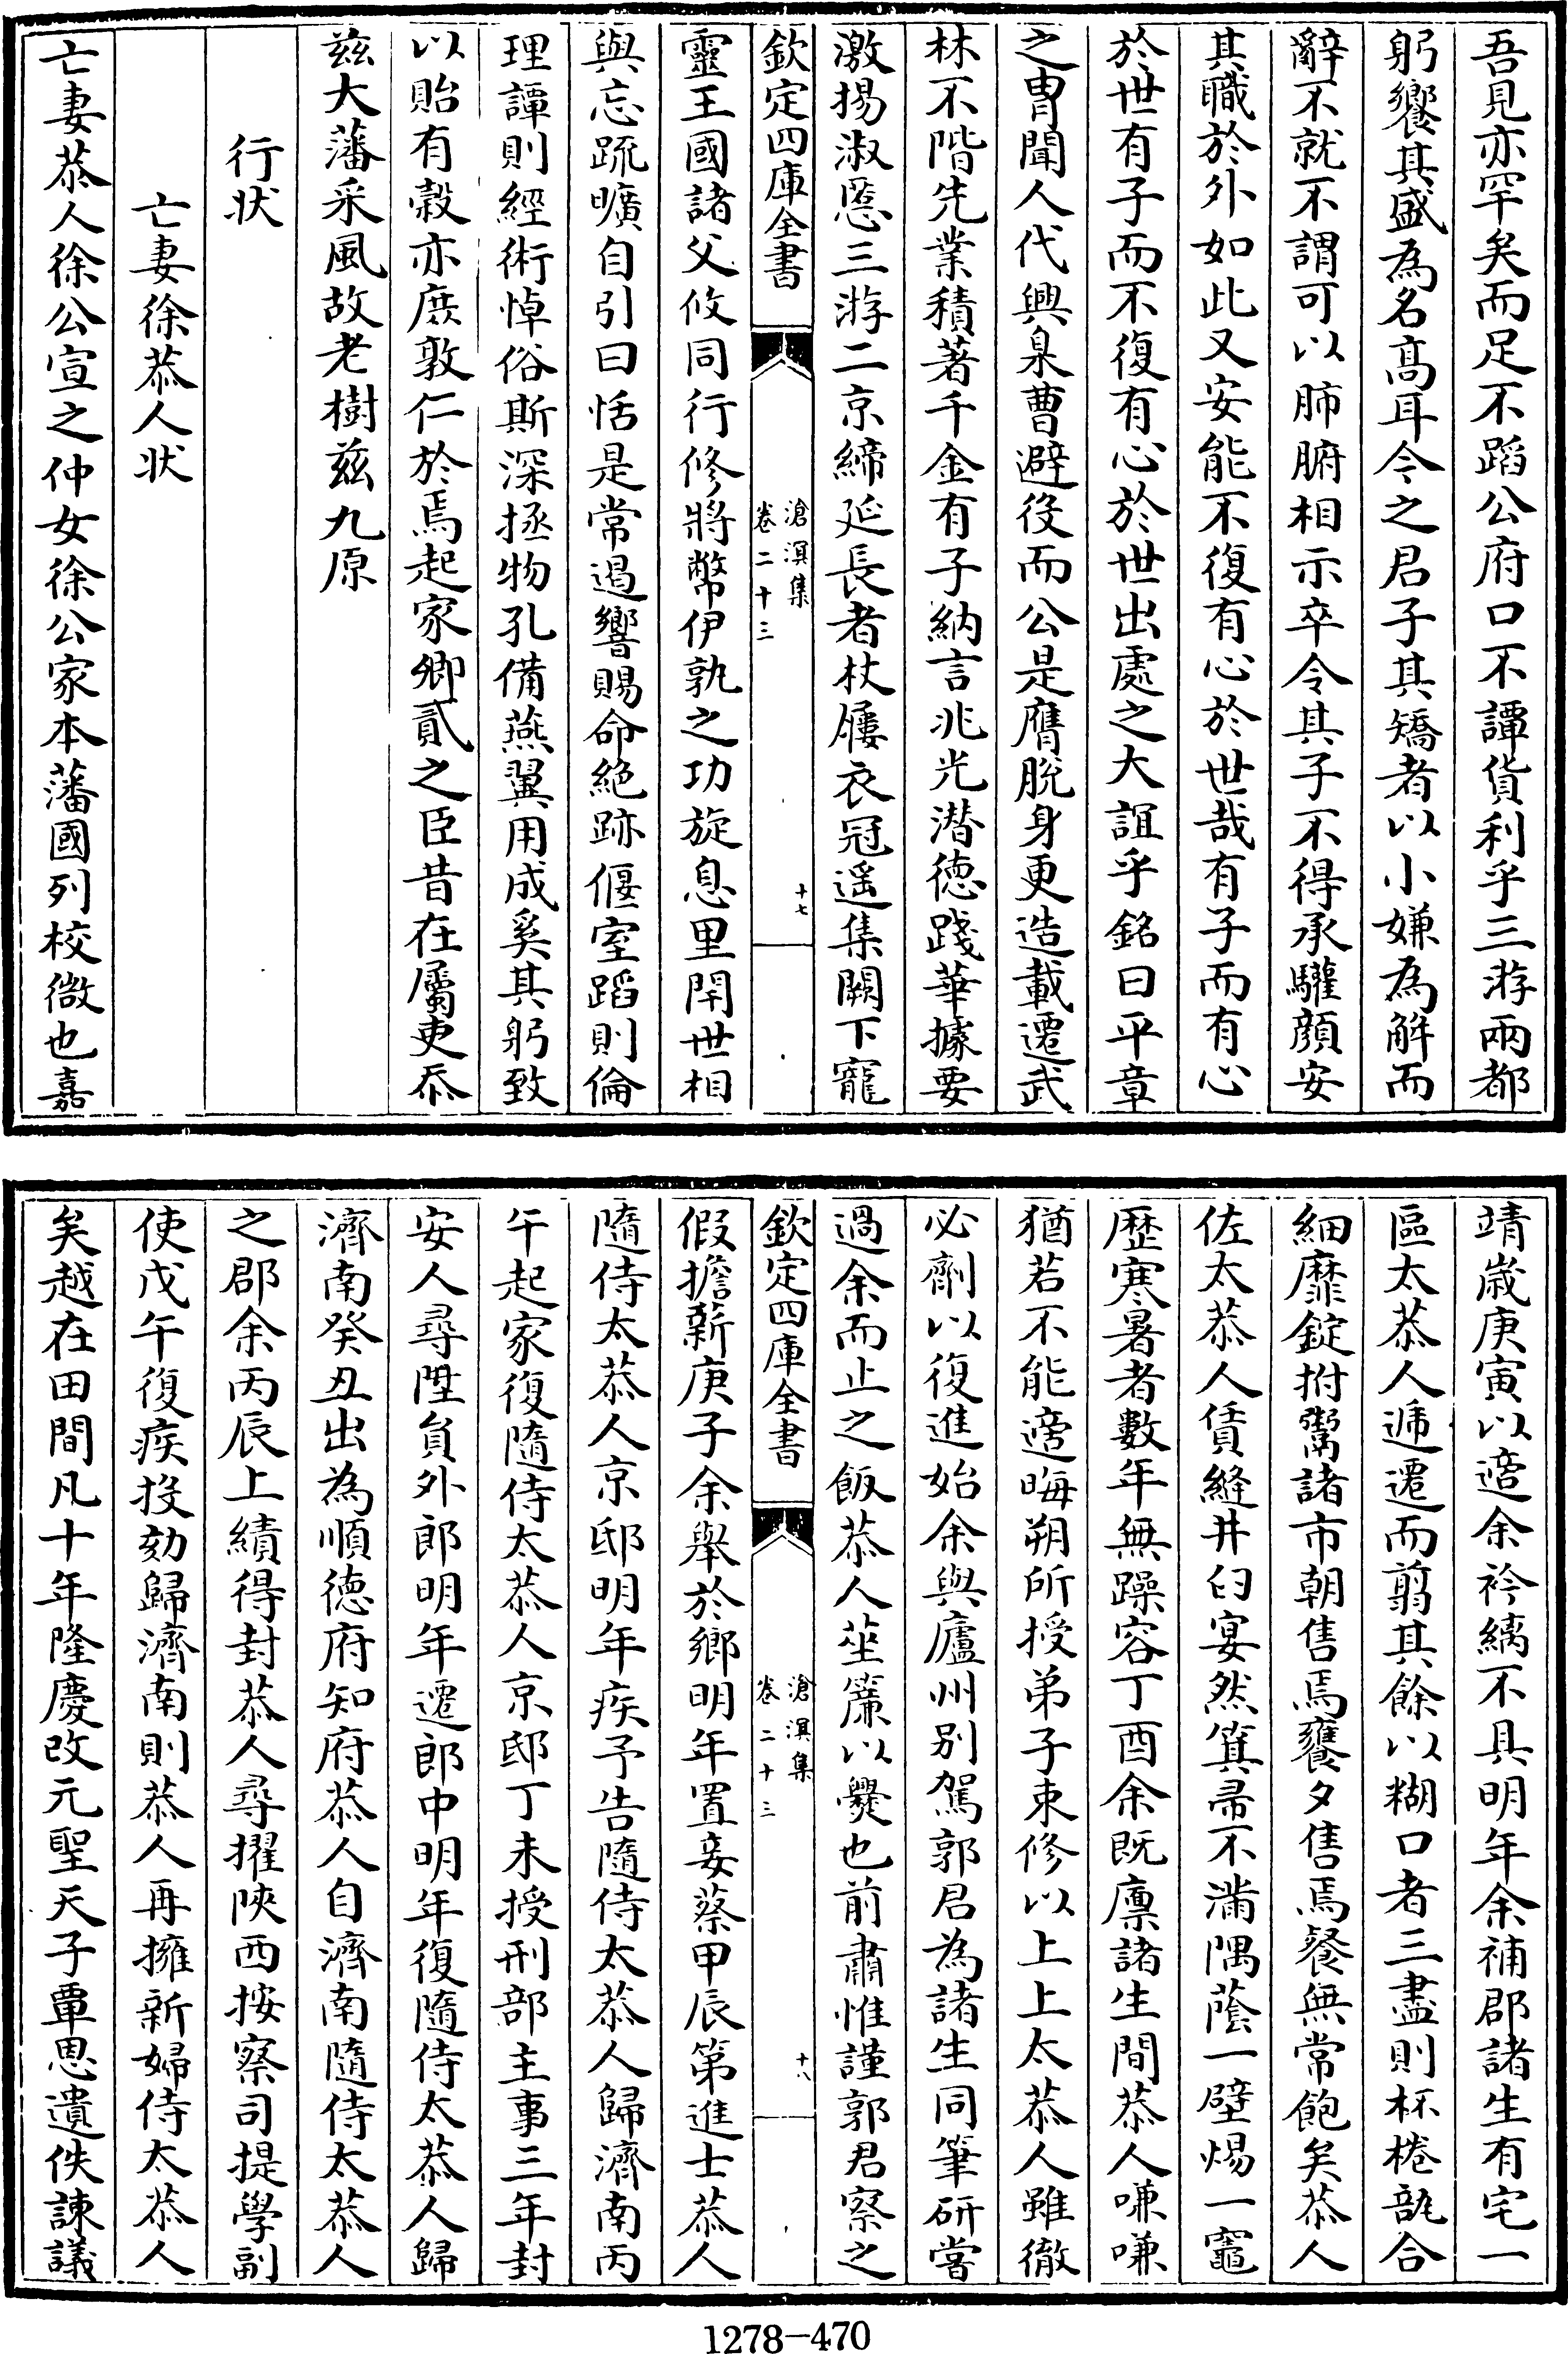 吾見亦罕矣而足不蹈公府口不譚貨利乎三游兩都
躬饗其盛為名髙耳令之君子其矯者以小嫌為解而
辭不就不謂可以肺腑相示卒令其子不得承驩顔安
其職於外如此又安能不復有心於世哉有子而有心
於世有子而不復有心於世出處之大誼乎銘曰平章
之胄聞人代興臬曹避役而公是膺脫身更造載遷武
林不階先業積著千金有子納言兆光潜德踐華據要
激揚淑慝三游二京締延長者杖屨衣冠遥集闕下寵
欽定四庫全書
滄溟集
卷二十三
十七
靈王國諸父攸同行修將幣伊孰之功旋息里閈世相
與忘疏曠自引曰恬是常遏響賜命絶跡偃室蹈則倫
理譚則經術悼俗斯深拯物孔備燕翼用成奚其躬致
以貽有榖亦庻敦仁於焉起家卿貳之臣昔在屬吏忝
兹大藩采風故老樹兹九原
行狀
亡妻徐恭人狀
亡妻恭人徐公宣之仲女徐公家本藩國列校微也嘉
靖嵗庚寅以適余衿縭不具明年余補郡諸生有宅一
區太恭人遞遷而翦其餘以糊口者三盡則杯棬瓿合
細靡錠拊鬻諸市朝售焉饔夕售焉餐無常飽矣恭人
佐太恭人賃縫井臼宴然箕帚不滿隅蔭一壁煬一竈
歴寒暑者數年無躁容丁酉余既廪諸生間恭人嗛嗛
猶若不能適晦朔所授弟子束修以上上太恭人雖徹
必劑以復進始余與廬州别駕郭君為諸生同筆研嘗
過余而止之飯恭人莝簾以爨也前肅惟謹郭君察之
欽定四庫全書
滄溟集
卷二十三
十八
假擔薪庚子余舉於鄉明年置妾蔡甲辰第進士恭人
隨侍太恭人京邸明年疾予告隨侍太恭人歸濟南丙
午起家復隨侍太恭人京邸丁未授刑部主事三年封
安人尋陞員外郎明年遷郎中明年復隨侍太恭人歸
濟南癸丑出為順德府知府恭人自濟南隨侍太恭人
之郡余丙辰上績得封恭人尋擢陜西按察司提學副
使戊午復疾投劾歸濟南則恭人再擁新婦侍太恭人
矣越在田間凡十年隆慶改元聖天子覃恩遺佚諫議
1278-470